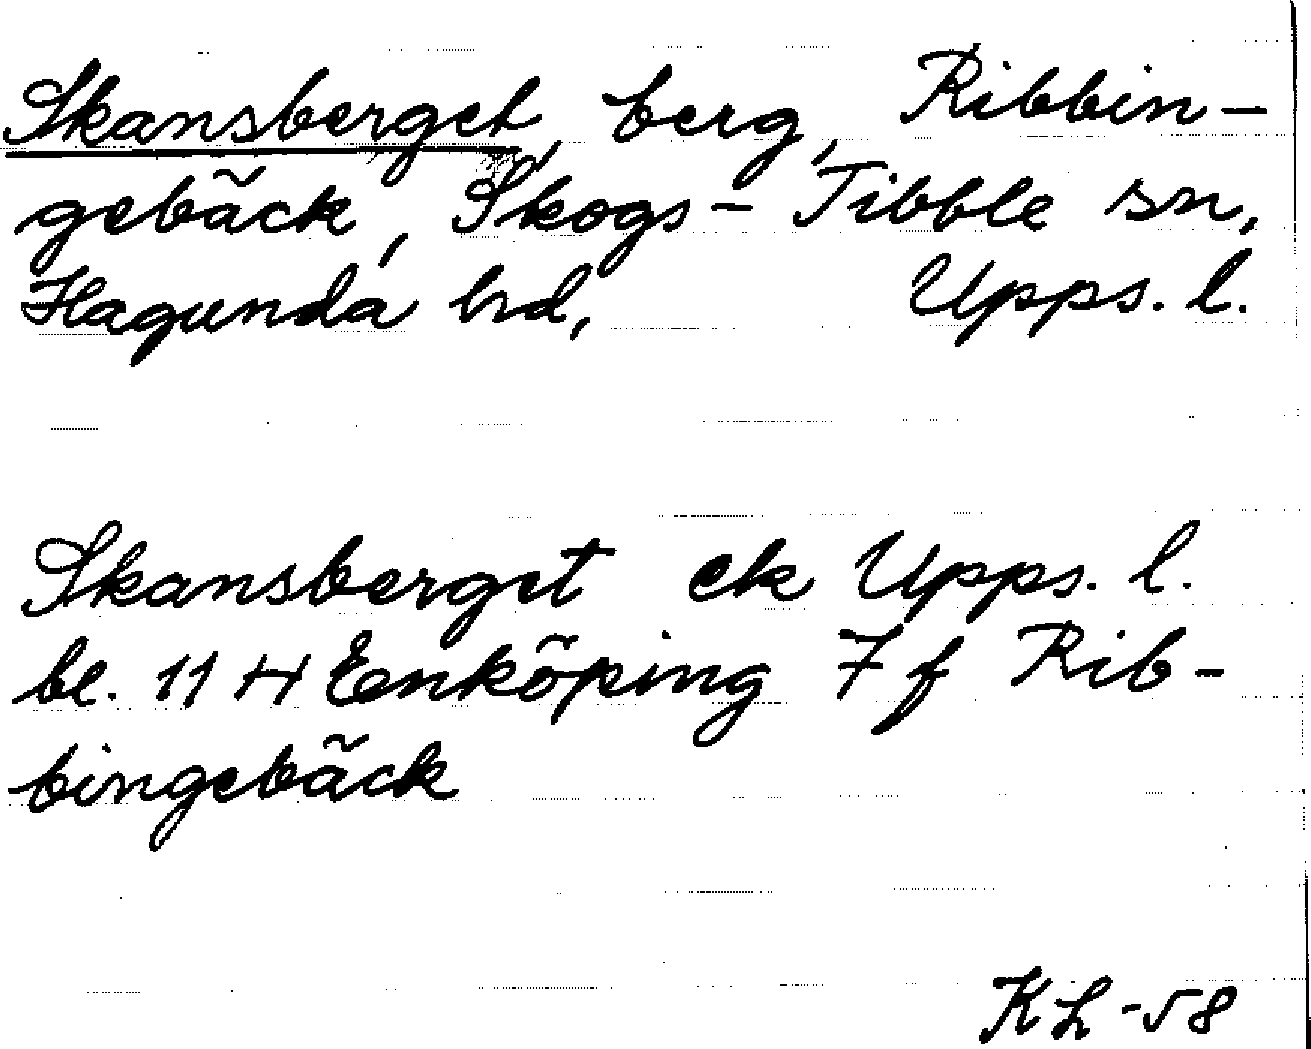 Skansberget, berg, Ribbin-
gebäck, Skogs-Tibble sn,
Hagunda hd, Upps. l.
Skansberget ek Upps. l.
bl. 11 H Enköping 7 f Rib-
bingebäck
KL -58